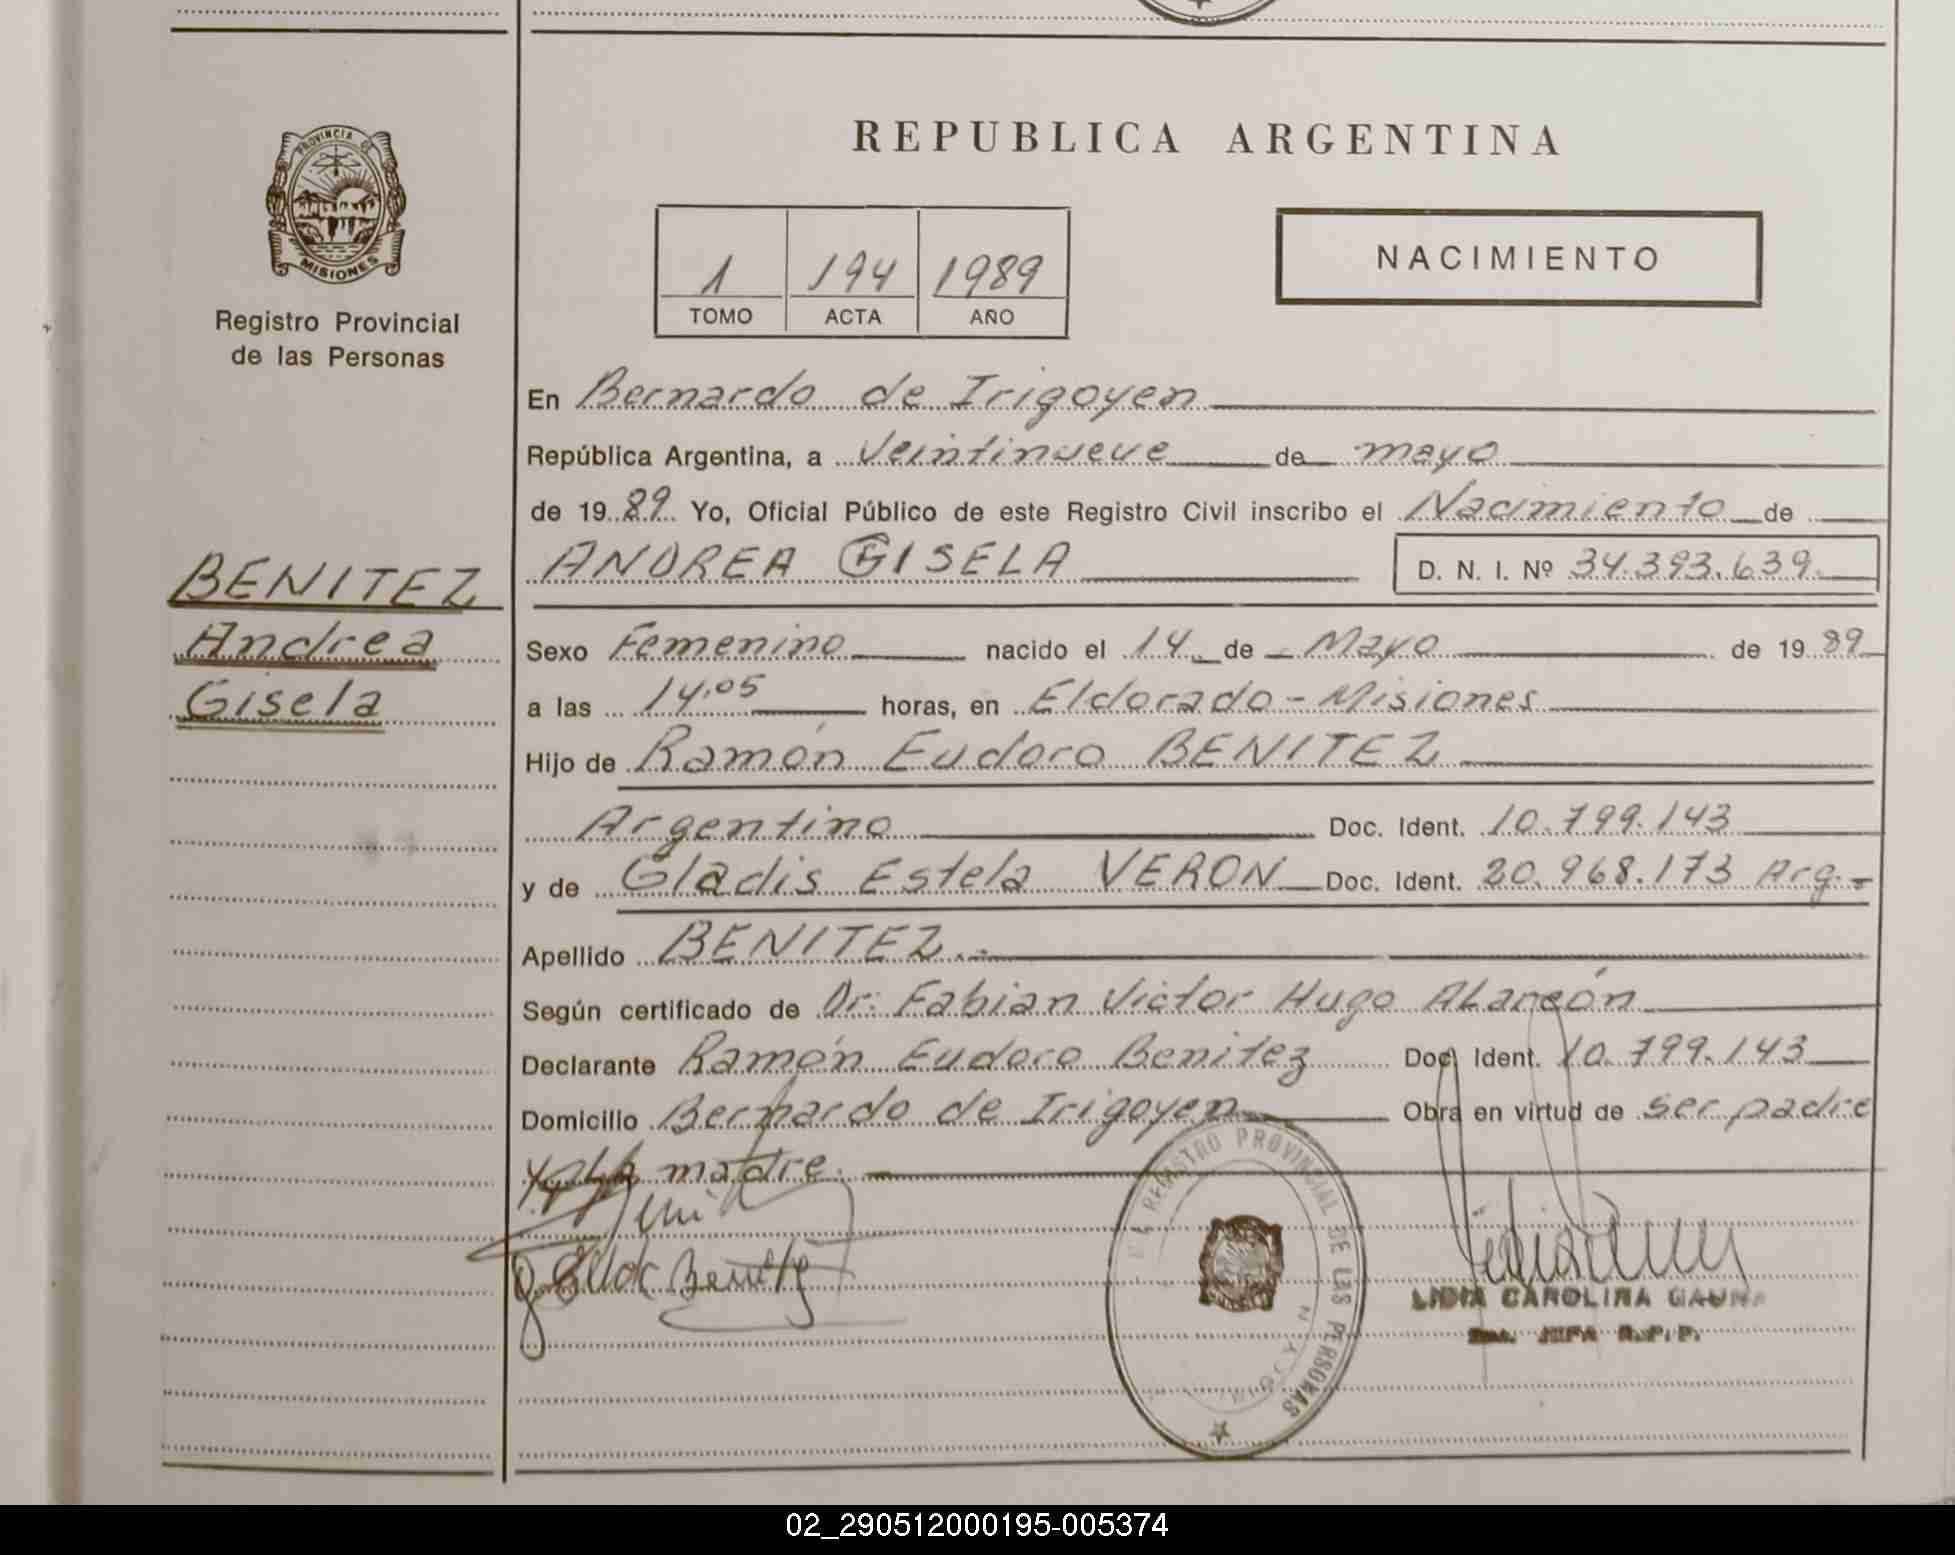 PROVINCIA DE
MISIONES
Registro Provincial
de las Personas
BENITEZ
Andrea
Gisela
REPUBLICA ARGENTINA
1 194 1989
TOMO ACTA AÑO
NACIMIENTO
En Bernardo de Irigoyen
República Argentina, a Veintinueve de mayo
de 1989 Yo, Oficial Público de este Registro Civil inscribo el Nacimiento de
ANDREA GISELA D. N. I. Nº 34.393.639.
Sexo Femenino nacido el 14 de Mayo de 1989
a las 14,05 horas, en Eldorado - Misiones
Hijo de Ramón Eudoro BENITEZ
Argentino Doc. Ident. 10.799.143
y de Gladis Estela VERON Doc. Ident. 20.968.173 Arg.-
Apellido BENITEZ.-
Según certificado de Dr. Fabian Victor Hugo ALarcón
Declarante Ramón Eudoro Benitez Doc. Ident. 10.799.143
Domicilio Bernardo de Irigoyen Obra en virtud de ser padre
y la madre.
REGISTRO PROVINCIAL DE LAS PERSONAS
LIDIA CAROLINA GAUNA
JEFA R.P.P.
02_290512000195-005374